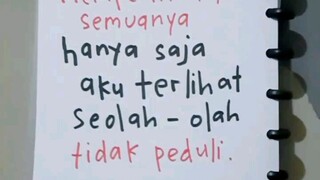 semuanya
hanya saja
aku terlihat
seolah - olah
tidak peduli.